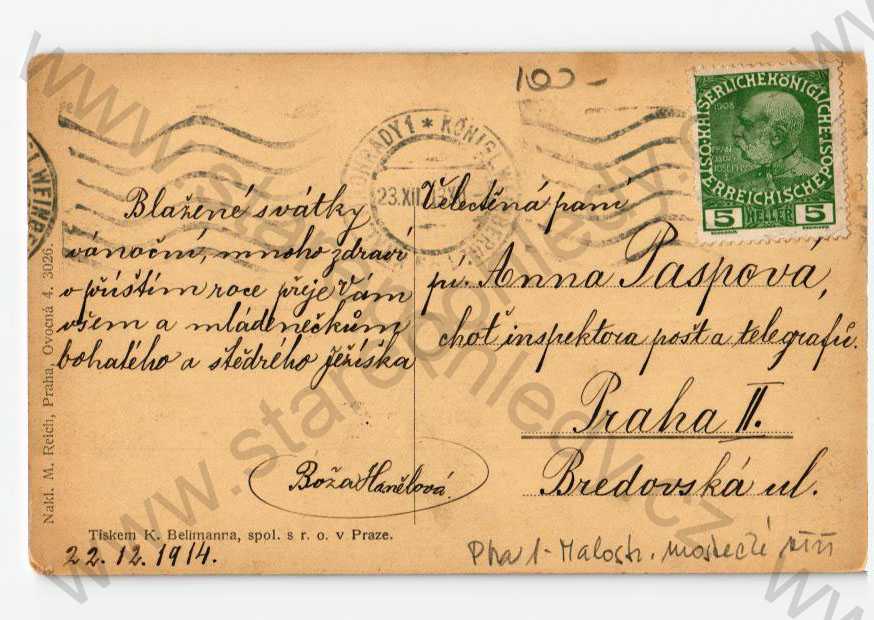 100-
K.K. ÖSTERREICHISCHE POST
1908
5 HELLER 5
23.XII
Blažené svátky
vánoční, mnoho zdraví
v příštím roce přeje Vám
všem a mládenečkům
bohatého a štědrého ježíška
Boža Hanělová.
Velectěná paní
pí. Anna Paspová,
choť inspektora pošt a telegrafů.
Praha II.
Bredovská ul.
Nakl. M. Reich, Praha, Ovocná 4. 3026.
Tiskem K. Bellmanna, spol. s r. o. v Praze.
22.12.1914.
Pha 1- Malostr. mostecké věži
www.staropohledy.cz